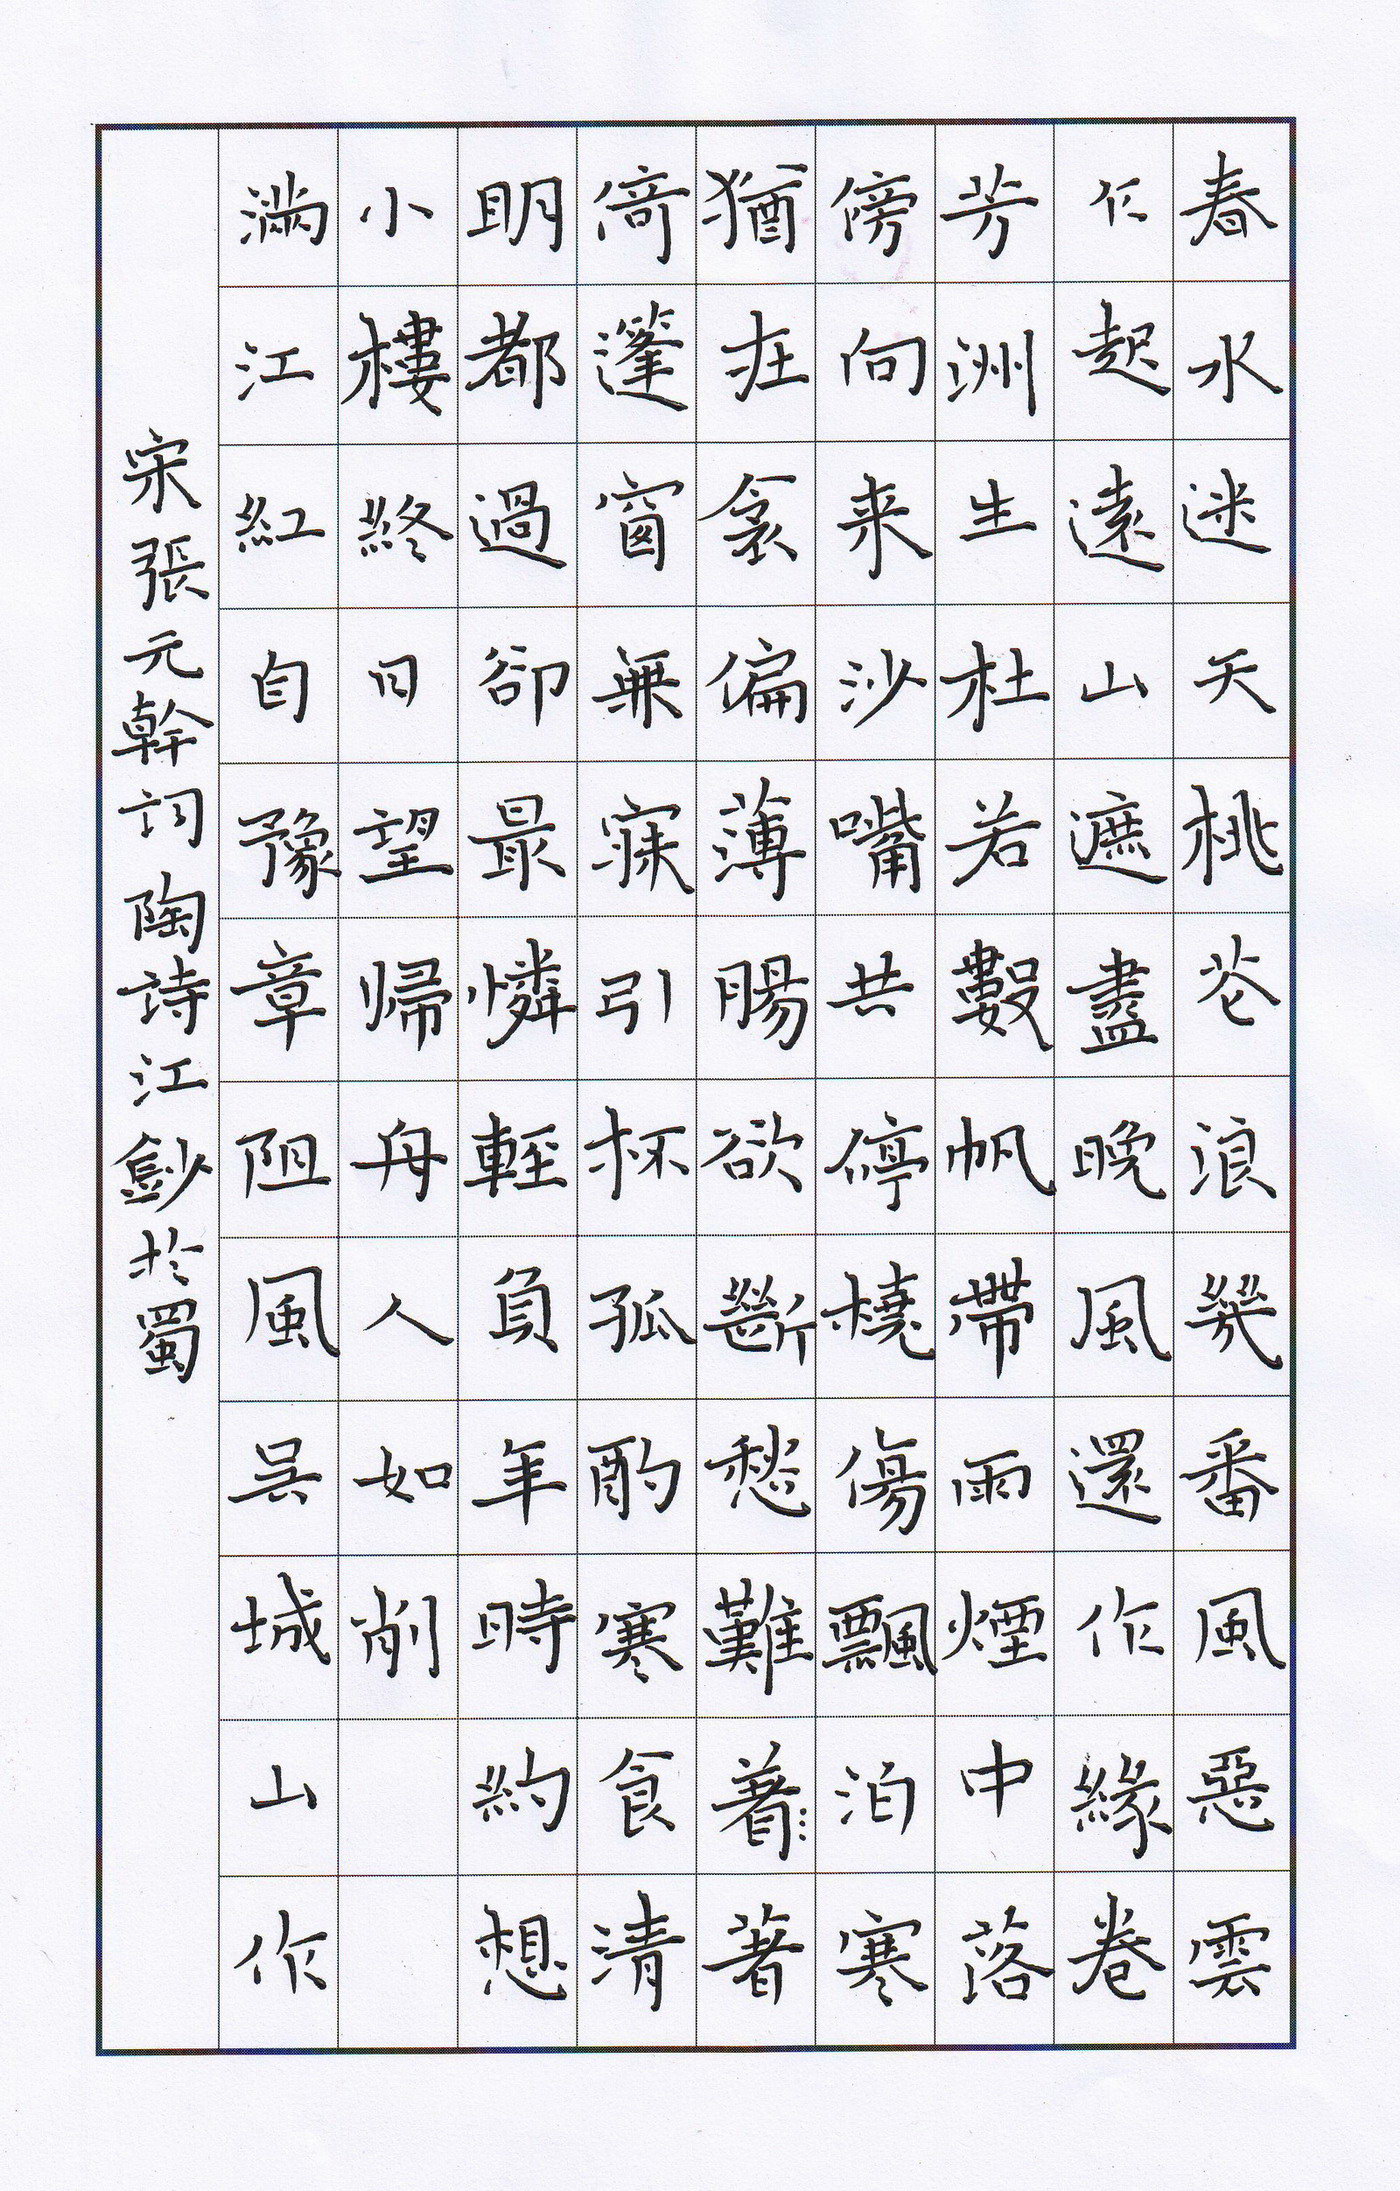 春水迷天桃花浪幾番風惡雲
乍起遠山遮盡晚風還作綠卷
芳洲生杜若數帆帶雨煙中落
傍向来沙嘴共停橈傷飄泊寒
猶在衾偏薄腸欲斷愁難著著
倚篷窗無寐引杯孤酌寒食清
明都過卻最憐輕負年時約想
小樓終日望歸舟人如削
滿江紅自豫章阻風吳城山作
宋張元幹詞陶詩江鈔於蜀